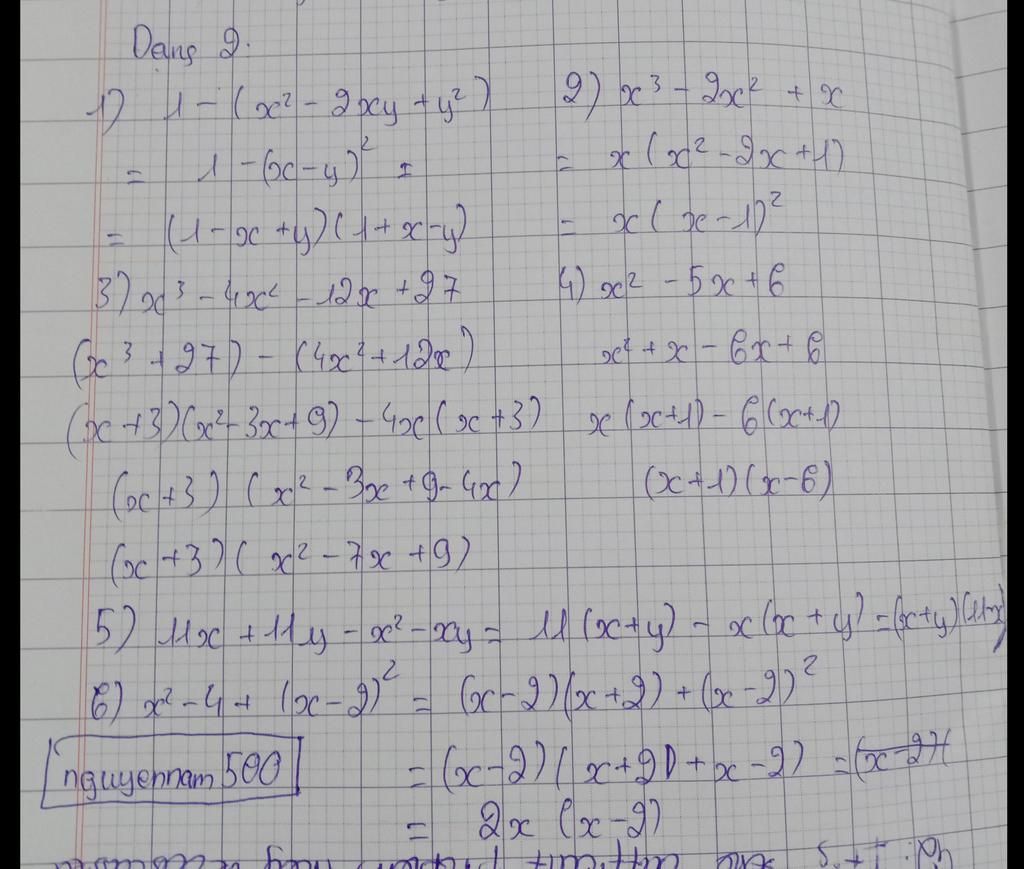 Dạng 2.
1) 1 - (x² - 2xy + y²)
= 1 - (x - y)² =
= (1 - x + y)(1 + x - y)
2) x³ - 2x² + x
= x(x² - 2x + 1)
= x(x - 1)²
3) x³ - 4x² - 12x + 27
(x³ + 27) - (4x² + 12x)
(x + 3)(x² - 3x + 9) - 4x(x + 3)
(x + 3)(x² - 3x + 9 - 4x)
(x + 3)(x² - 7x + 9)
4) x² - 5x + 6
x² + x - 6x + 6
x(x + 1) - 6(x + 1)
(x + 1)(x - 6)
5) 11x + 11y - x² - xy = 11(x + y) - x(x + y) = (x + y)(11 - x)
6) x² - 4 + (x - 2)² = (x - 2)(x + 2) + (x - 2)²
= (x - 2)(x + 2) + x - 2) = (x - 2)(
= 2x (x - 2)
nguyennam500